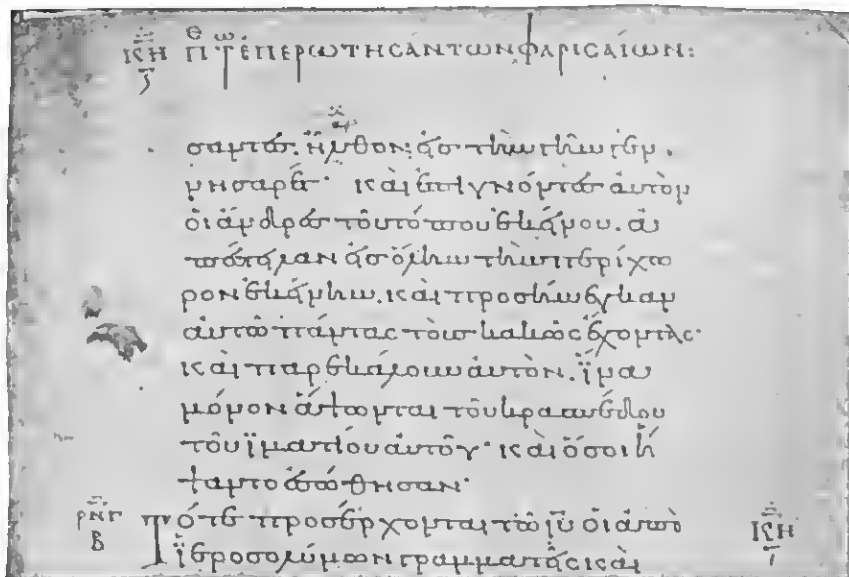 ἐπερωτησάντων φαρισαίων:
σαντες. ἦλθον εἰς τὴν γῆν γεν
νησαρέτ· καὶ ἐπιγνόντες αὐτὸν
οἱ ἄνδρες τοῦ τόπου ἐκείνου. ἀ
πέστειλαν εἰς ὅλην τὴν περίχω
ρον ἐκείνην. καὶ προσήνεγκαν
αὐτῶ πάντας τοὺς κακῶς ἔχοντας·
καὶ παρεκάλουν αὐτὸν. ἵνα
μόνον ἅψωνται τοῦ κρασπέδου
τοῦ ἱματίου αὐτοῦ· καὶ ὅσοι ἥ
ψαντο ἐσώθησαν·
ρνγ Β Τότε προσέρχονται τῶ ιῦ οἱ ἀπὸ
ἱεροσολύμων γραμματεῖς καὶ